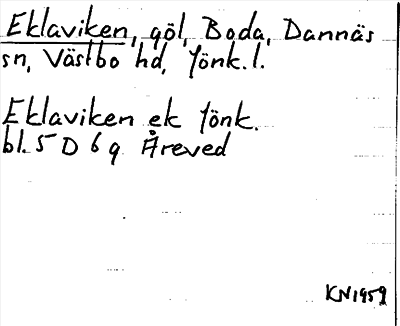 Eklaviken, göl, Boda, Dannäs
sn, Västbo hd, Jönk. l.
Eklaviken ek Jönk.
bl. 5 D 6 g Åreved
KN 1959